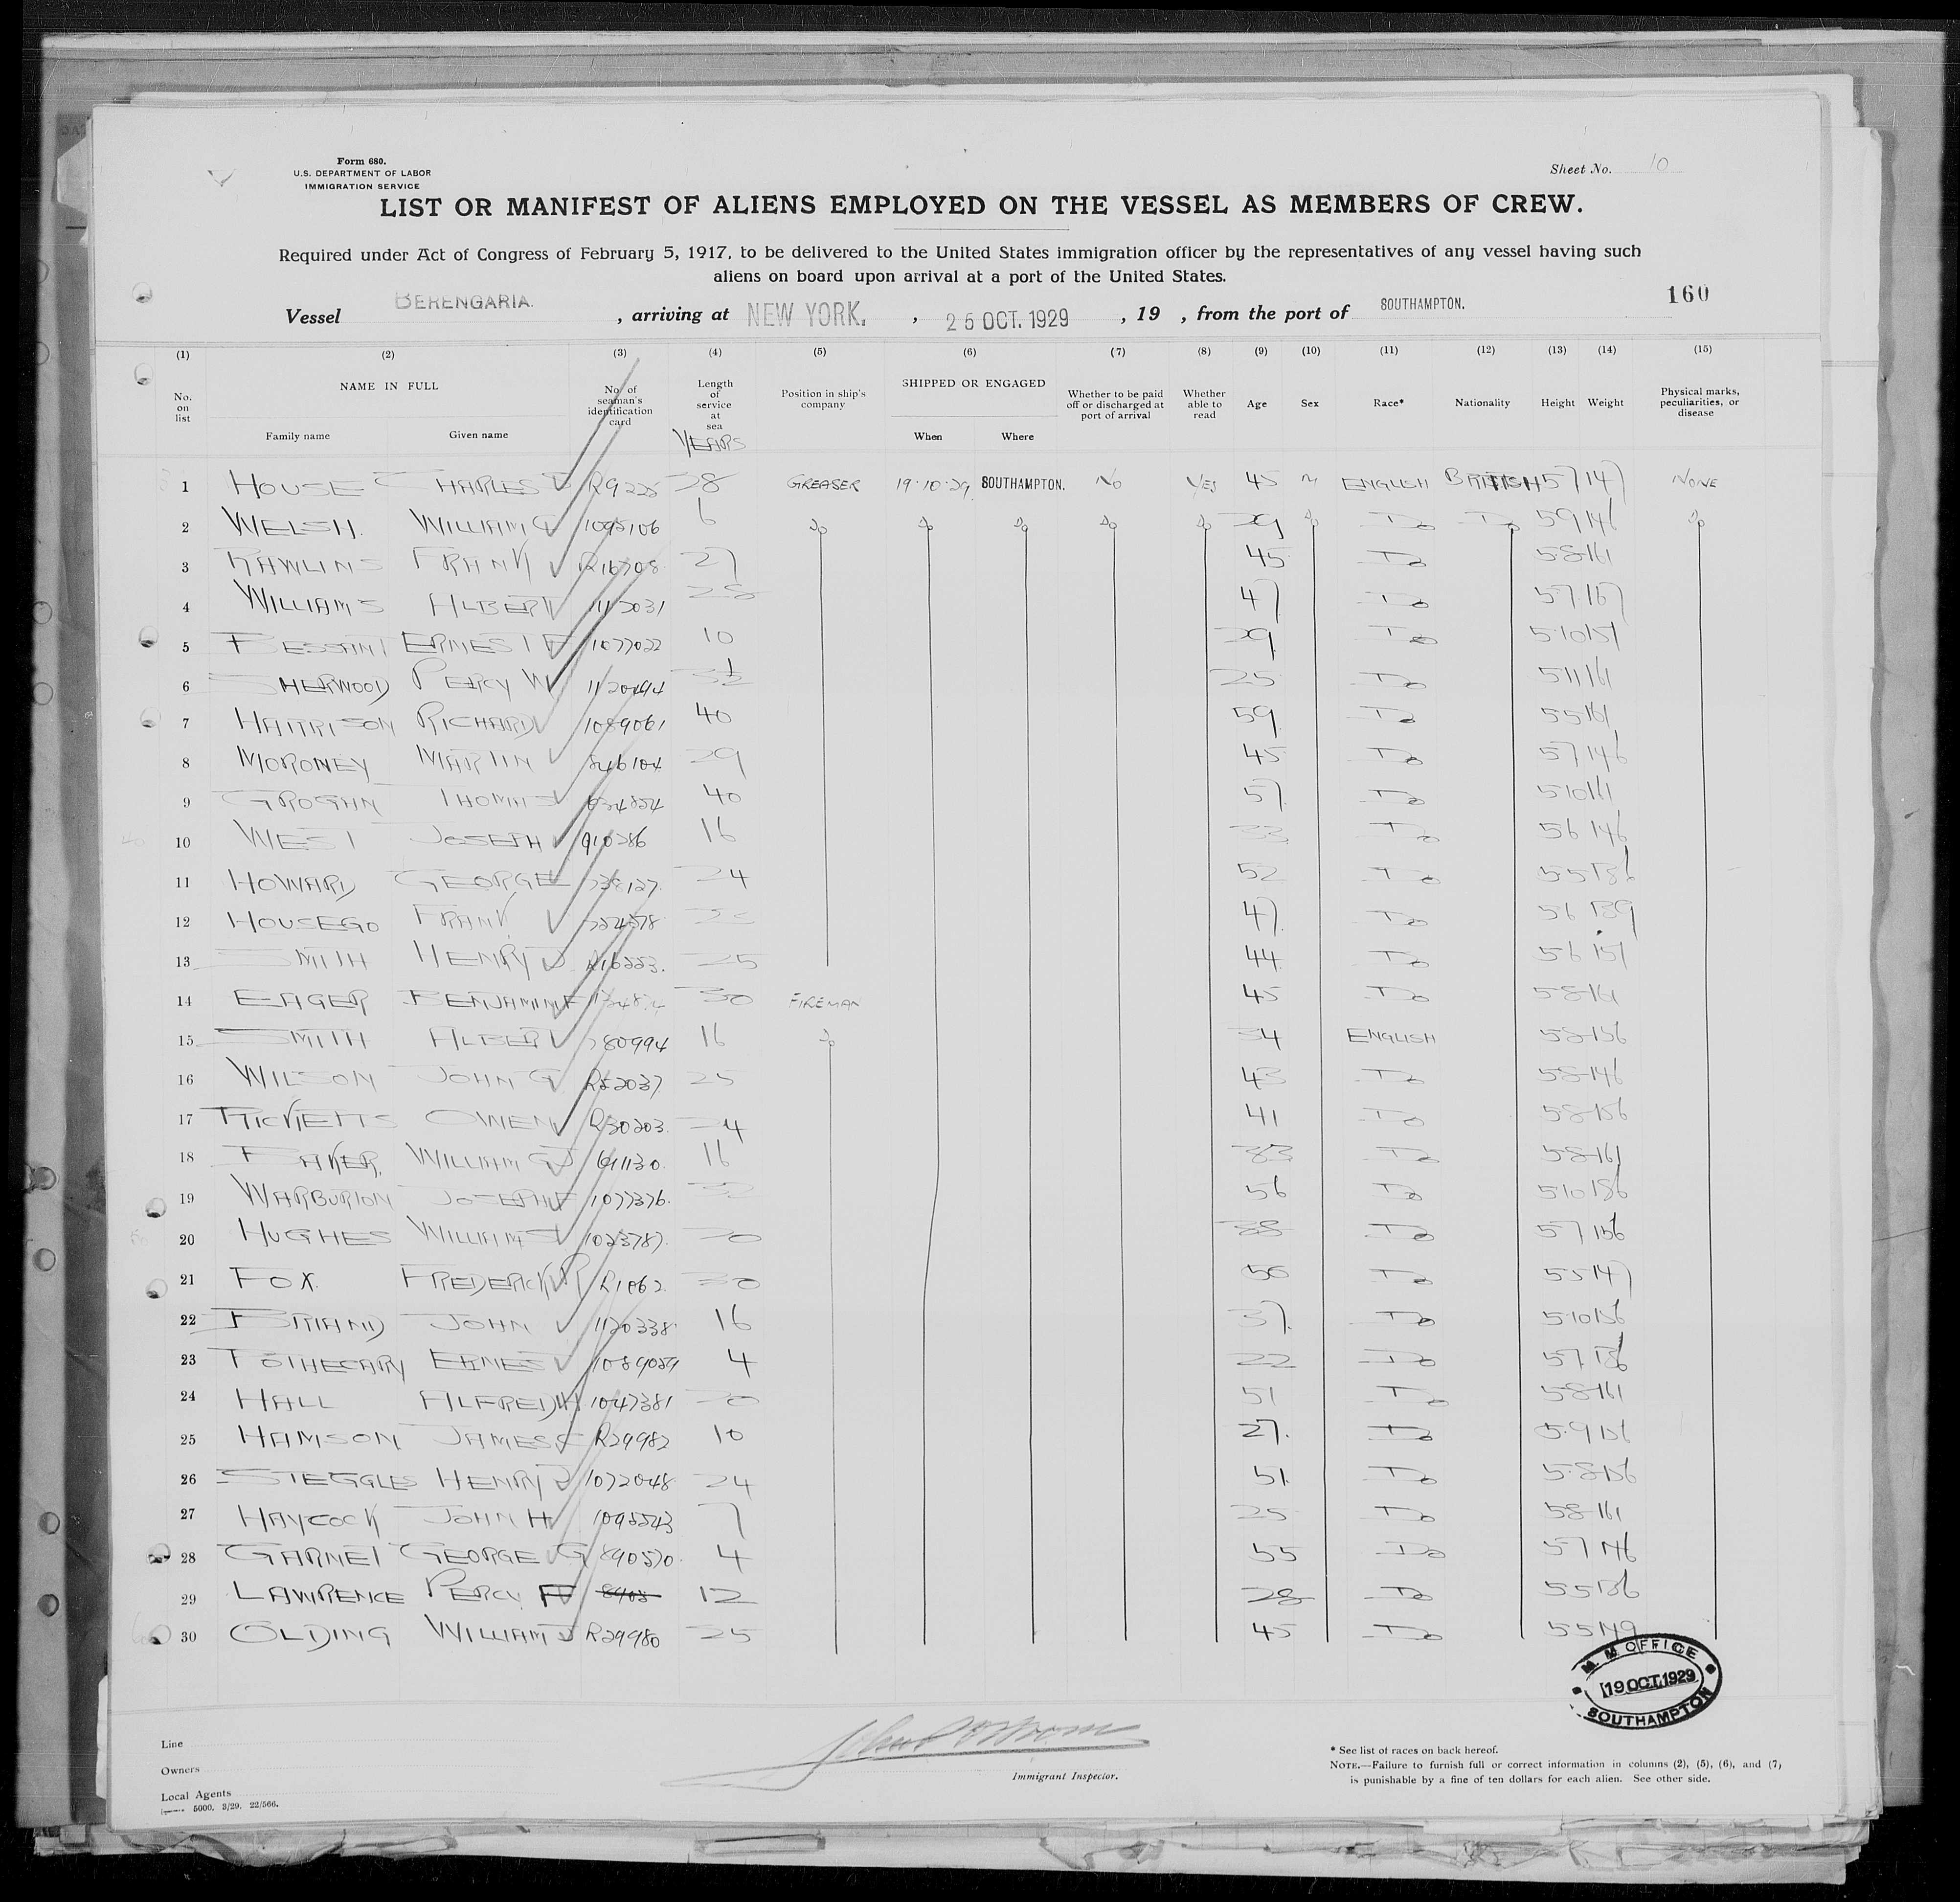 Form 680.
U.S. DEPARTMENT OF LABOR
IMMIGRATION SERVICE
Sheet No. 10
LIST OR MANIFEST OF ALIENS EMPLOYED ON THE VESSEL AS MEMBERS OF CREW.
Required under Act of Congress of February 5, 1917, to be delivered to the United States immigration officer by the representatives of any vessel having such
aliens on board upon arrival at a port of the United States.
160
Vessel BERENGARIA. , arriving at NEW YORK. , 25 OCT. 1929 , 19 , from the port of SOUTHAMPTON.
(1) (2) (3) (4) (5) (6) (7) (8) (9) (10) (11) (12) (13) (14) (15)
No. on list NAME IN FULL Family name Given name No. of seaman's identification card Length of service at sea YEARS Position in ship's company SHIPPED OR ENGAGED When Where Whether to be paid off or discharged at port of arrival Whether able to read Age Sex Race* Nationality Height Weight Physical marks, peculiarities, or disease
1 HOUSE CHARLES J R9225 28 GREASER 19.10.29 SOUTHAMPTON. NO YES 45 M ENGLISH BRITISH 5 7 147 NONE
2 WELSH. WILLIAM G 1095106 6 Do Do Do Do Do 29 Do Do Do 5 9 146 Do
3 RAWLINS FRANK R16708 27 45 Do 5 8 161
4 WILLIAMS ALBERT 28 47 Do 5 7 167
5 BESSANT ERNEST F 1077022 10 29 Do 5 10 151
6 SHERWOOD PERCY W 1120494 3½ 25 Do 5 11 161
7 HARRISON RICHARD 1089061 40 59 Do 5 5 161
8 MORONEY MARTIN 846104 29 45 Do 5 7 146
9 GROGAN THOMAS 40 57 Do 5 10 161
10 WEST JOSEPH 910286 16 33 Do 5 6 146
11 HOWARD GEORGE 738127 24 52 Do 5 5 136
12 HOUSEGO FRANK 32 47 Do 5 6 139
13 SMITH HENRY J 25 44 Do 5 6 151
14 EAGER BENJAMIN F 30 FIREMAN 45 Do 5 8 161
15 SMITH ALBERT 780994 16 Do 34 ENGLISH 5 8 156
16 WILSON JOHN G R52037 25 43 Do 5 8 146
17 RICKETTS OWEN R30203 24 41 Do 5 8 156
18 BAKER. WILLIAM G 16 33 Do 5 8 161
19 WARBURTON JOSEPH F 1077376 32 56 Do 5 10 186
20 HUGHES WILLIAM S 1023787 20 38 Do 5 7 156
21 FOX. FREDERICK R R1062 30 50 Do 5 5 147
22 BRIAND JOHN 1120338 16 37 Do 5 10 156
23 POTHECARY ERNEST 1089059 4 22 Do 5 7 136
24 HALL ALFRED H 1047381 20 51 Do 5 8 161
25 HAMSON JAMES R29982 10 27. Do 5 9 156
26 STEGGLES HENRY J 1072048 24 51 Do 5 8 156
27 HAYCOCK JOHN H 1095543 7 25 Do 5 8 161
28 GARNET GEORGE G 890570 4 55 Do 5 7 146
29 LAWRENCE PERCY F 12 28 Do 5 5 136
30 OLDING WILLIAM J R29980 25 45 Do 5 5 149
M. M. OFFICE
19 OCT. 1929
SOUTHAMPTON
Line
Owners
Local Agents
5000. 3/29. 22/566.
Immigrant Inspector.
* See list of races on back hereof.
NOTE.—Failure to furnish full or correct information in columns (2), (5), (6), and (7)
is punishable by a fine of ten dollars for each alien. See other side.